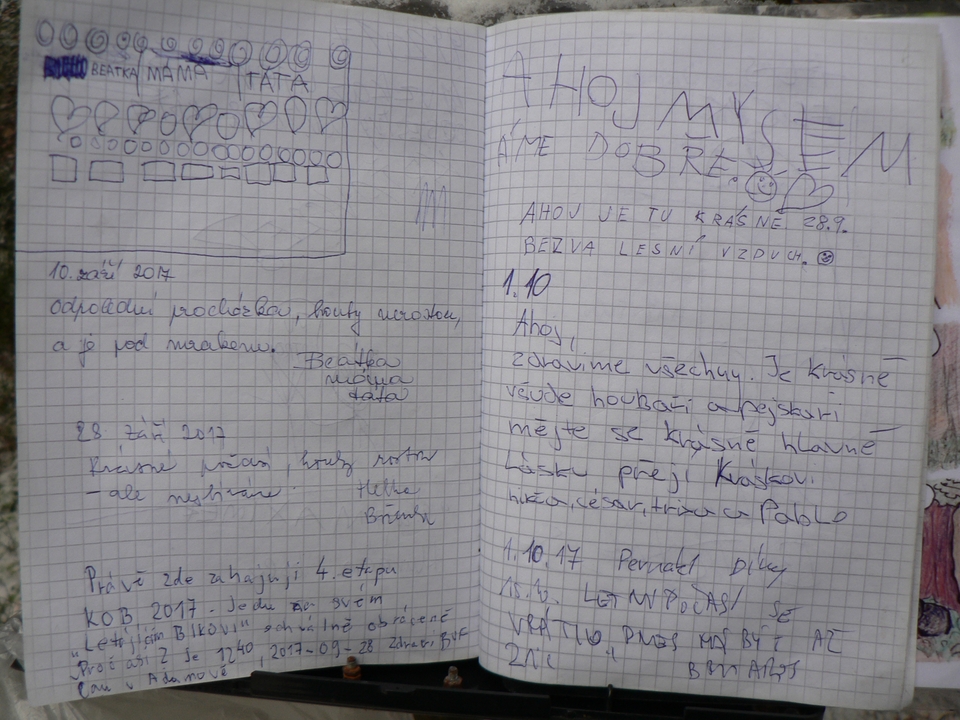 BEATKA MÁMA TÁTA
10. září 2017
odpolední procházka, houby nerostou,
a je pod mrakem.
Beátka
máma
táta
28. září 2017
Krásné počasí, houby rostou
- ale nesbíráme.
Právě zde zahajuji 4. etapu
KOB 2017. Jedu na svém
"Letajícím BIKOVI" schválně obráceně
Proč asi? Je 1240, 2017-09-28 Zdraví
v Adamově
AHOJ MY SE M
ÁME DOBŘE.
AHOJ JE TU KRÁSNĚ 28.9.
BEZVA LESNÍ VZDUCH.
1.10
Ahoj,
zdravíme všechny. Je krásně
všude houbaři a pejskaři
mějte se krásně hlavně
lásku přejí Kráskovi
césar, a Pablo
1.10.17 Permakl Díky
LETNÍ POČASÍ SE
VRÁTILO, DNES MÁ BÝT AŽ